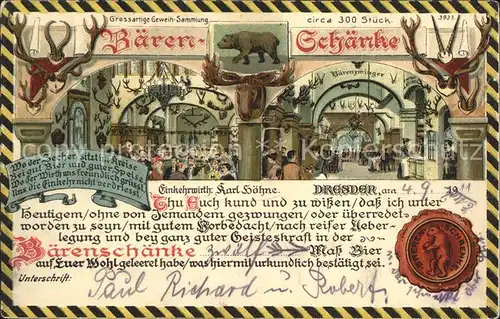 Grossartige Geweih-Sammlung. circa 300 Stück.
3935
Bären-Schänke
Bärenzwinger
Wo der Zecher sitzt im Kreise
Bei gut Bier und guter Speise
Wo der Wirth uns freundlich grüsst
Uns die Einkehr nicht verdriesst.
Einkehrwirth: Karl Höhne. DRESDEN, am 4. 9. 1911
Thu Euch kund und zu wißen, daß ich unter
Heutigem, ohne von Jemandem gezwungen, oder überredet
worden zu seyn, mit gutem Vorbedacht, nach reifer Ueber-
legung und bey ganz guter Geisteskraft in der
Bärenschänke zwölf Maß Bier
auf Euer Wohl geleeret habe, was hiermit urkundlich bestätigt sei.
Unterschrift: Paul Richard u. Robert.